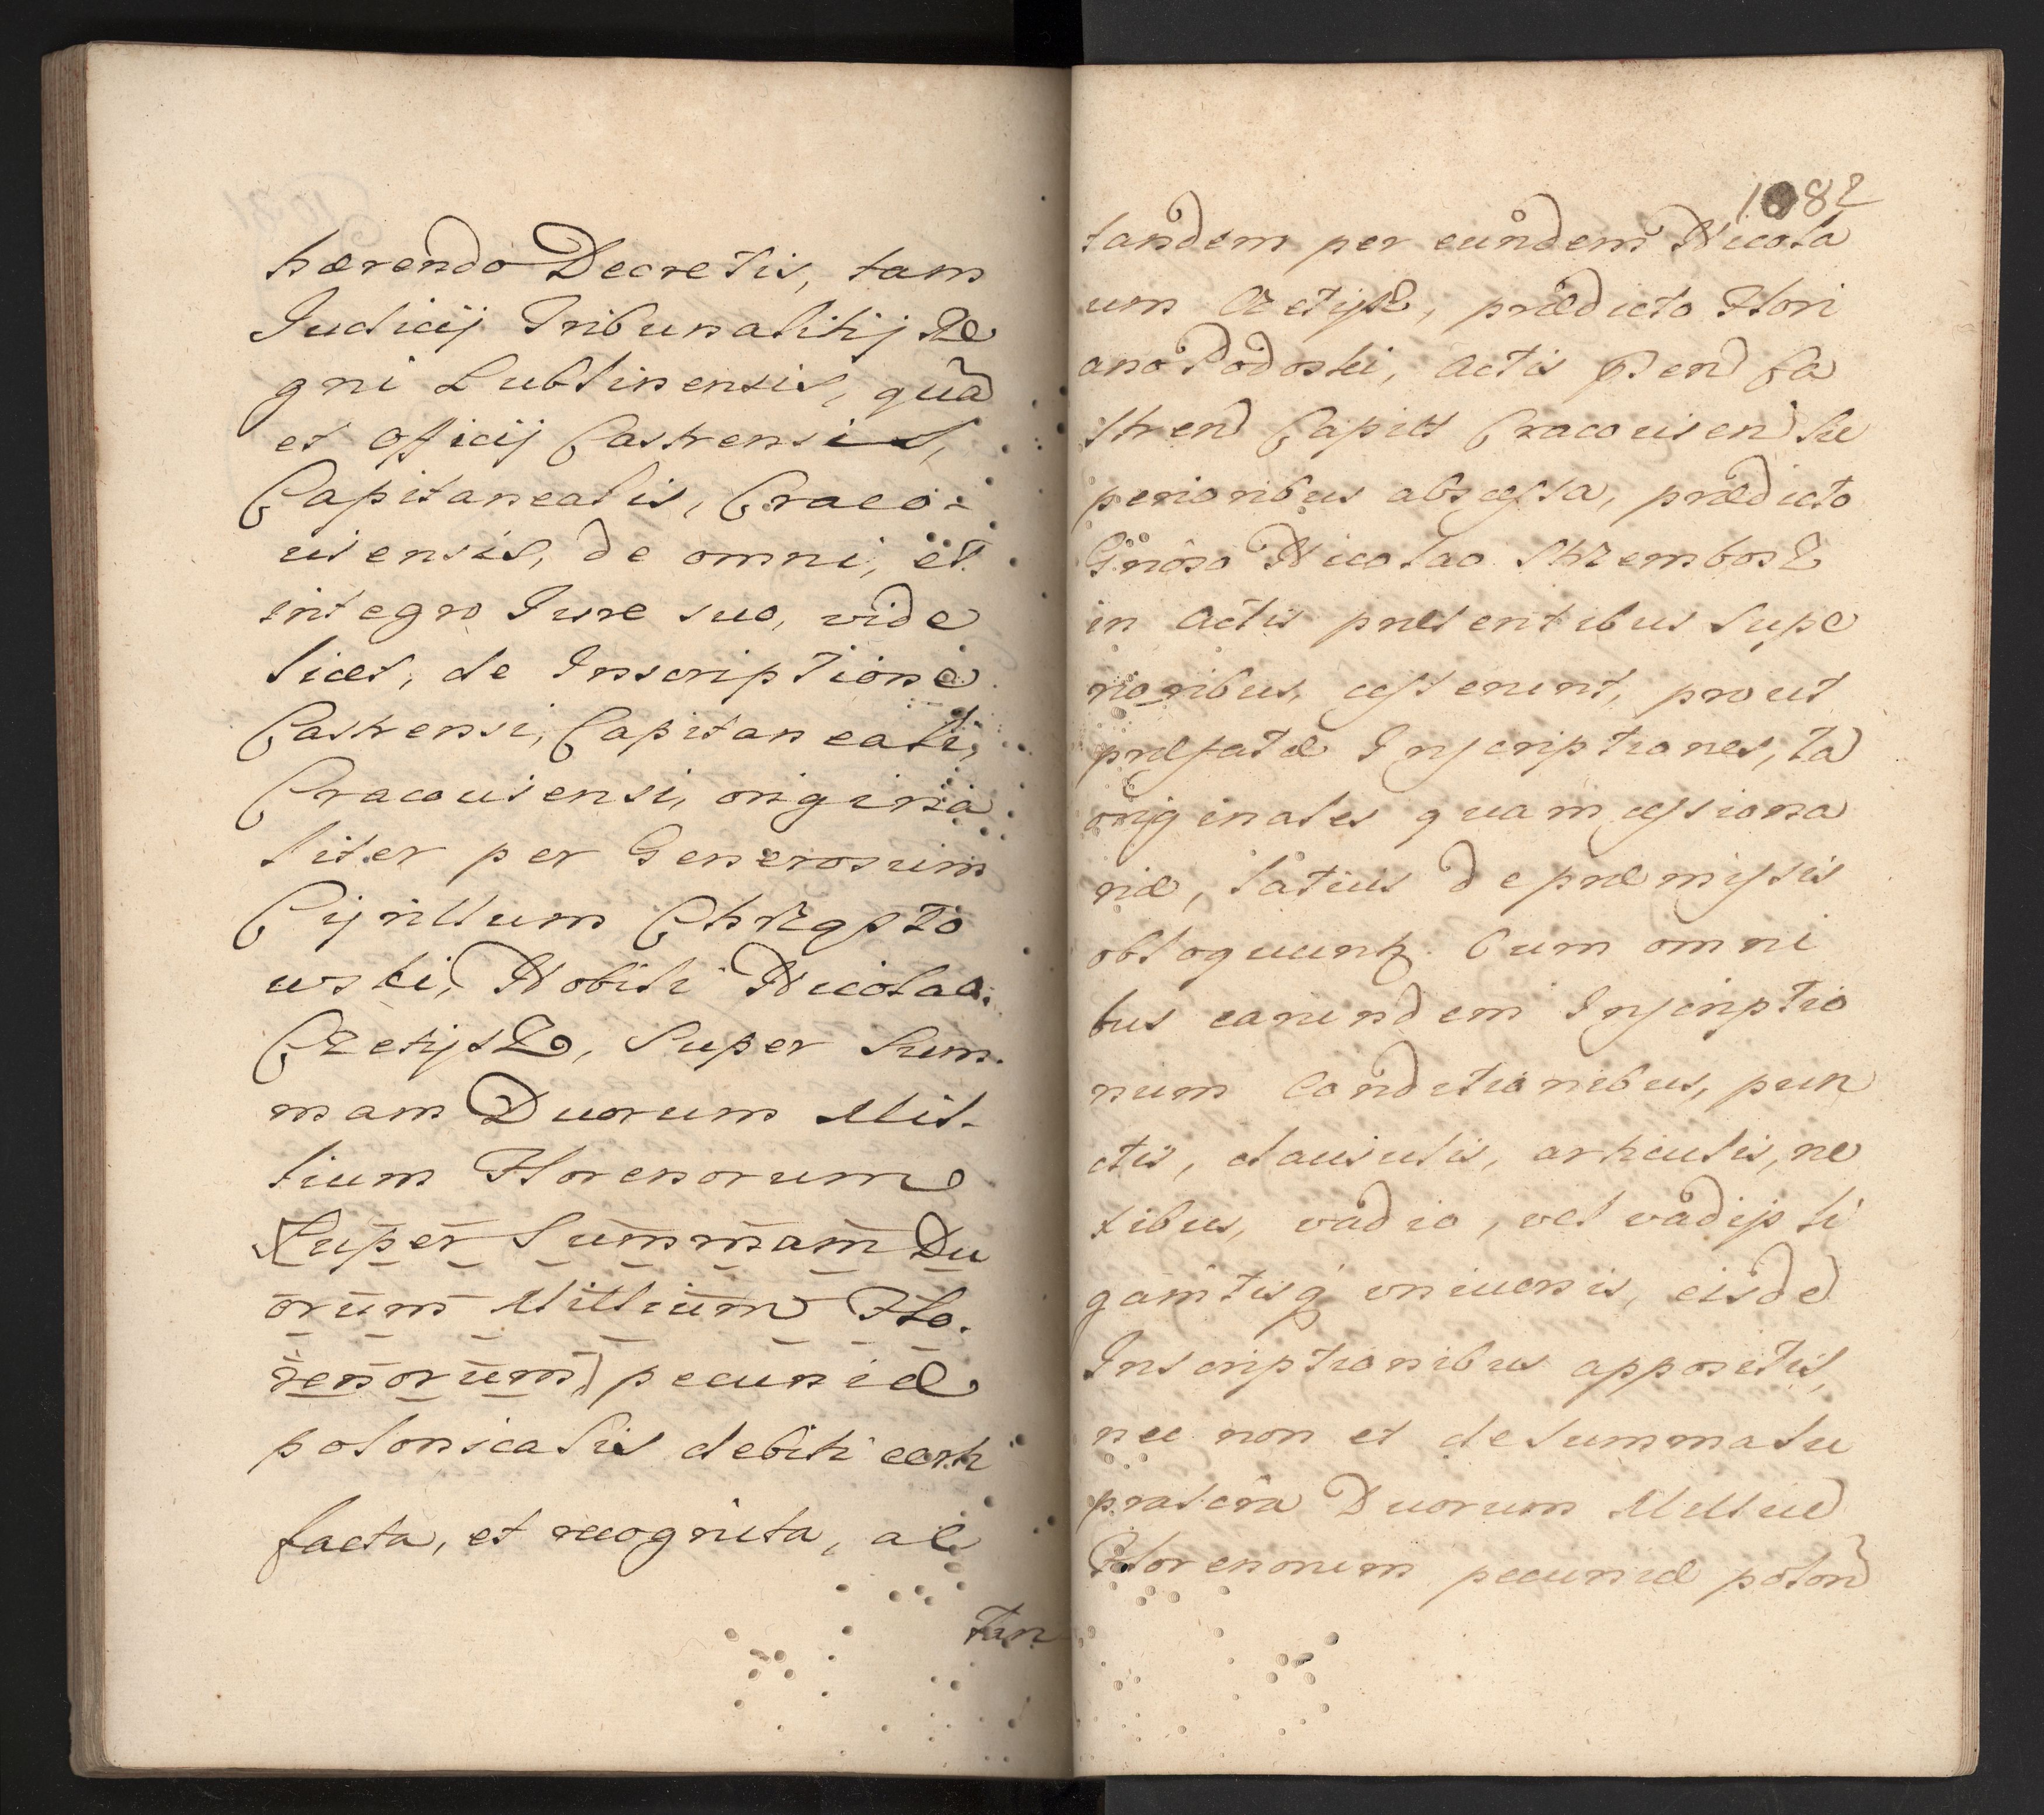 hærendo Decretis, tam
Judicij Tribunalitij Re
gni Lublinensis, quã
et Officij Castrensis,
Capitanealis, Craco-
uiensis, de omni, et
integro Jure suo, vide
licet, de Inscriptione
Castrensi, Capitaneali,
Cracouiensi, origina
liter per Generosum
Cyrillum Chrząsto
wski, Nobili Nicolao
Czetysz, Super Sum-
mam Duorum Mil-
lium Florenorum
(Super Summam Du
orum Millium Flo-
renorum) pecuniæ
polonicalis debiti certi
facta, et recognita, ac
tan
1082
tandem per eundem Nicola
um Czetysz, prædicto Flori
ano Podoski, actis Pend Ca
stren Capitl Cracouien Su
perioribus abscessa, prædicto
Gnoso Nicolao Strzembosz
in actis præsentibus supe
rioribus, cesserunt, prout
præfatæ Inscriptiones, ta
originales quam cessiona
riæ, latius de præmissis
obloquunt. Cum omni
bus earundem Inscriptio
num Conditionibus, pun
ctis, clausulis, articulis, ne
xibus, vadio, vel vadijs li
gamtisq vniuersis, eisdẽ
Inscriptionibus appositis,
nec non et de summa su
prascra Duorum Milliũ
Florenorum pecuniæ polon